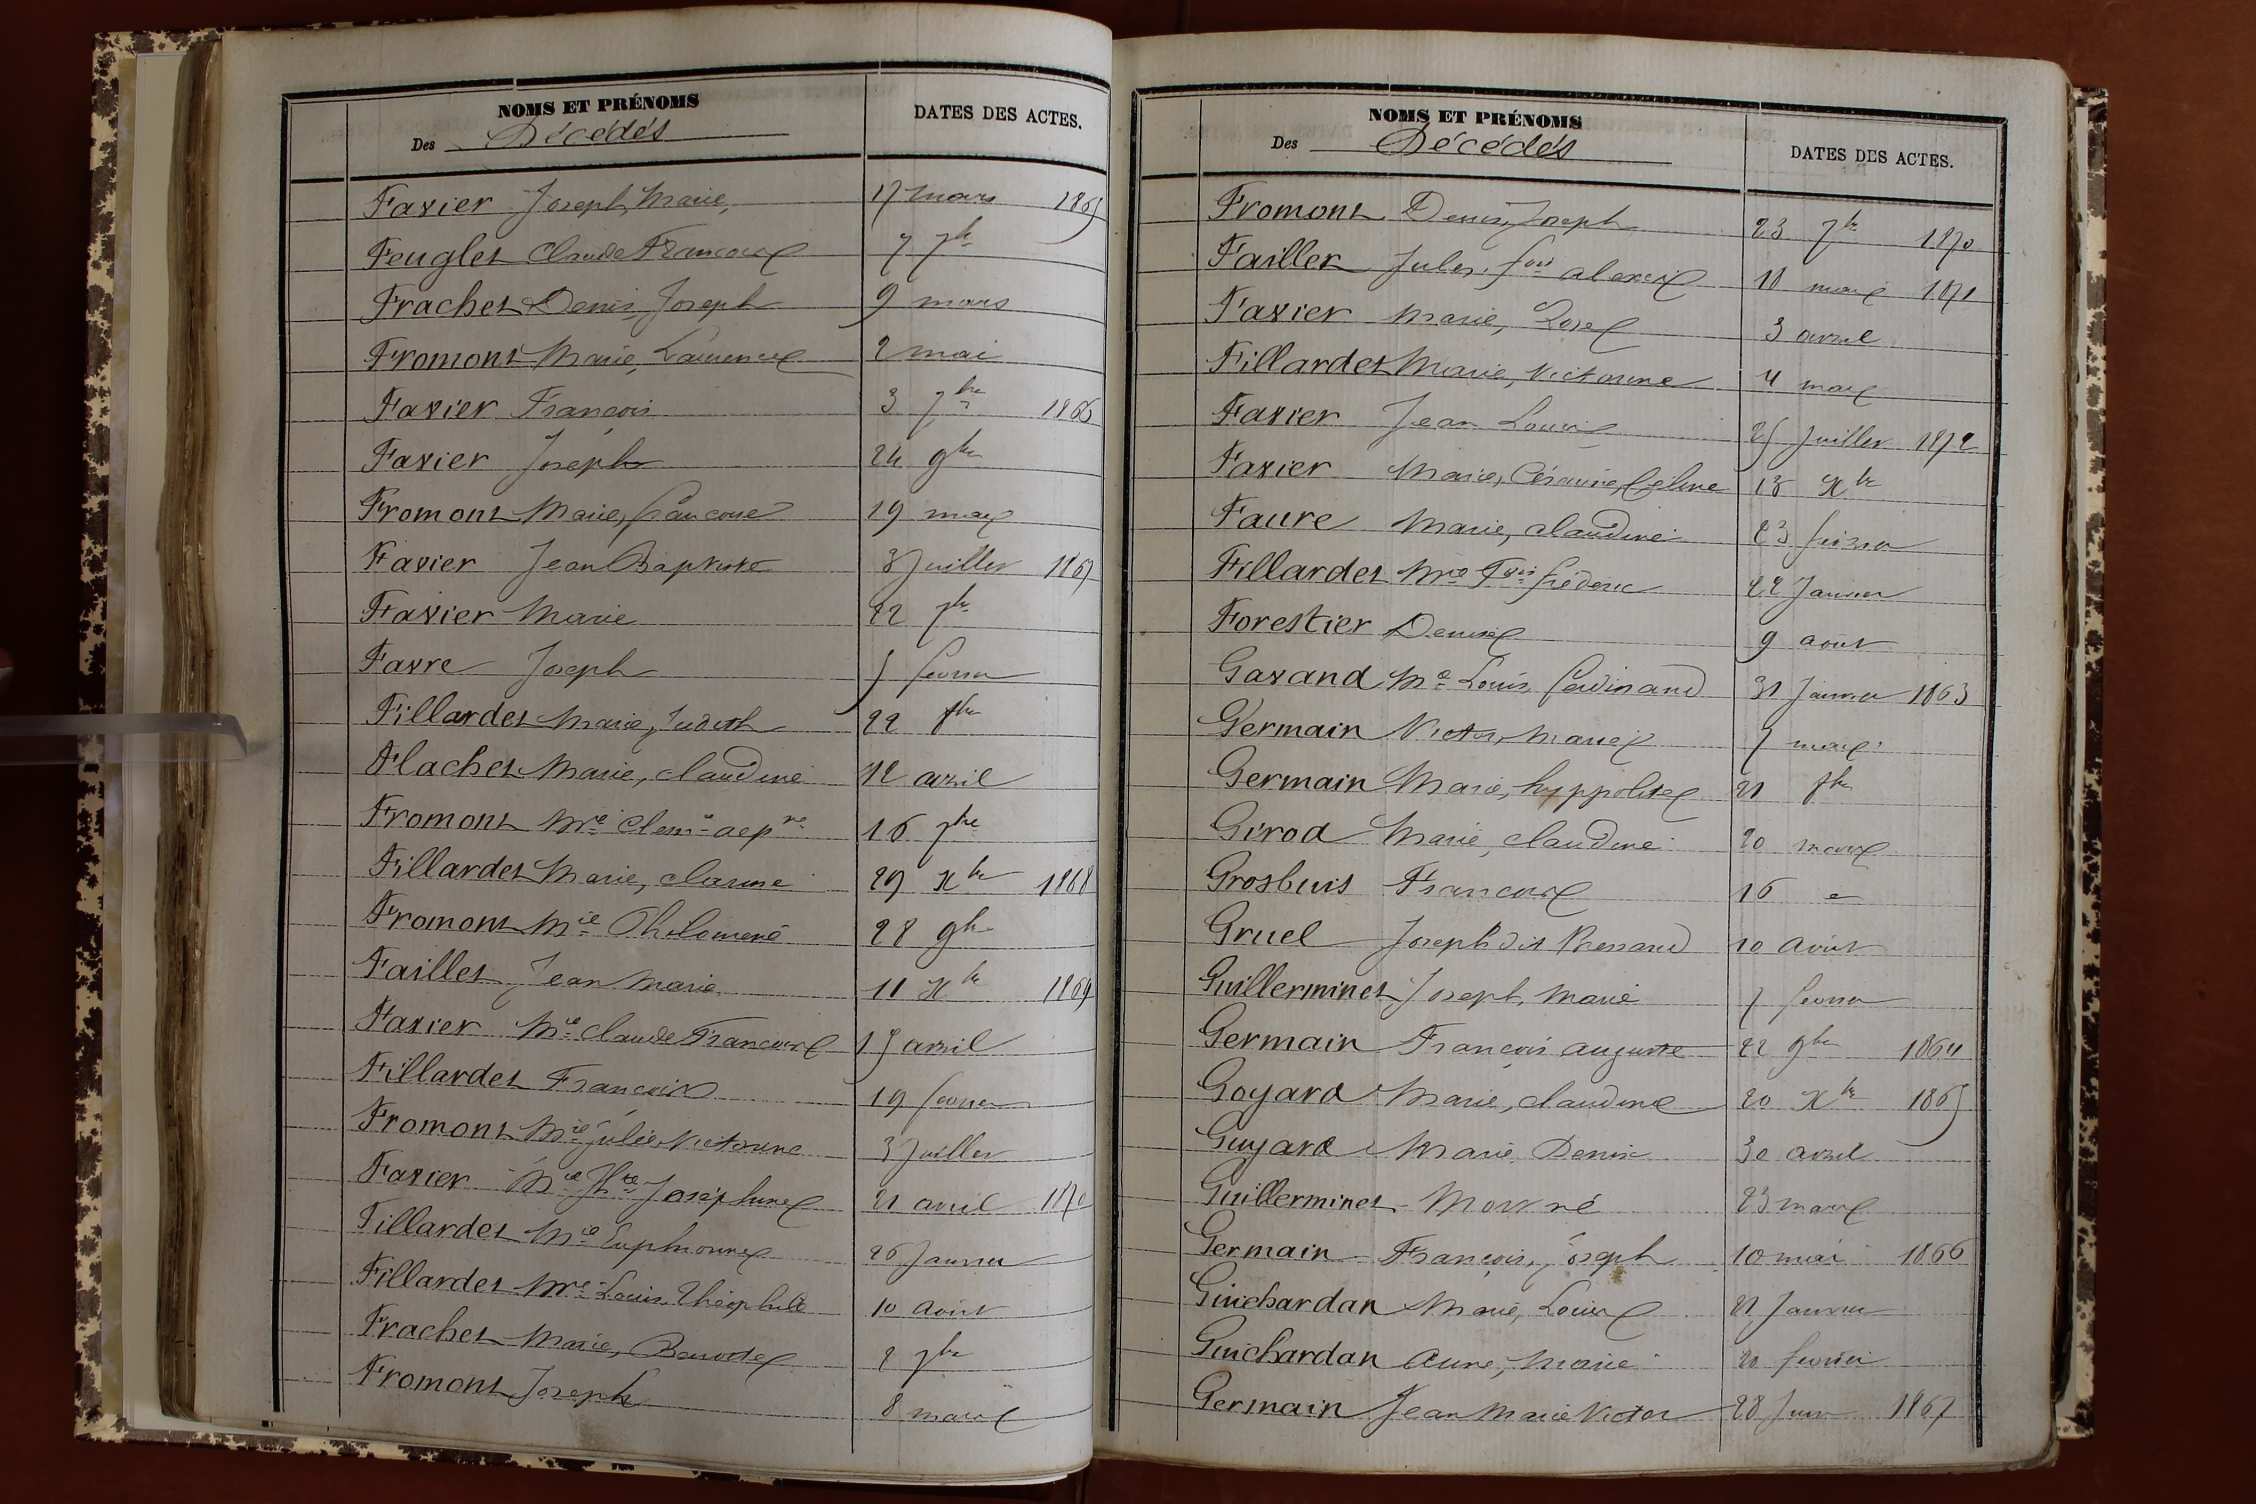 NOMS ET PRÉNOMS
Des Décédés
DATES DES ACTES.
Favier Joseph, Marie, 17 mars 1865
Feuglet Claude Francoise 7 7bre
Frachet Denis, Joseph 9 mars
Fromont Marie, Laurence 2 mai
Favier François 3 7bre 1866
Favier Joseph 24 9bre
Fromont Marie, francoise 19 mars
Favier Jean Baptiste 3 Juillet 1867
Favier Marie 22 7bre
Favre Joseph 5 fevrier
Fillardet Marie, Judith 22 8bre
Flachet Marie, claudine 12 avril
Fromont Mie Clem 16 7bre
Fillardet Marie, clarisse 29 Xbre 1868
Fromont Mie Philomene 28 9bre
Faillet Jean Marie 11 Xbre 1869
Favier Mie Claude Francoise 15 avril
Fillardet Francois 19 fevrier
Fromont Mie Julie Victorine 3 Juillet
Favier Mie Josephine 21 avril 1870
Fillardet Mie Euphrosine 26 Janvier
Fillardet Mie Louis Théophile 10 Août
Frachet Marie, Benoite 2 7bre
Fromont Joseph 8 mars
NOMS ET PRÉNOMS
Des Décédés
DATES DES ACTES.
Fromont Denis, Joseph 23 7bre 1870
Faillet Jules, fois alexis 11 mars 1871
Favier Marie, Rose 3 avril
Fillardet Marie, Victorine 4 mars
Favier Jean Louis 25 Juillet 1872
Favier Marie, Césarie, Celine 13 Xbre
Faure Marie, claudine 23 fevrier
Fillardet Mie Fois fréderic 22 Janvier
Forestier Denise 9 août
Gavand Me Louis ferdinand 31 Janvier 1863
Germain Victor, Marie 7 mars
Germain Marie, hyppolite 21 8bre
Girod Marie, claudine 20 mars
Grosbuis Francoise 16 "
Gruel Joseph dit Bressand 10 Août
Guillerminet Joseph, Marie 7 fevrier
Germain François auguste 22 9bre 1864
Goyard Marie, claudine 20 Xbre 1865
Guyard Marie Denis 30 avril
Guillerminet Mort né 23 mars
Germain François, Joseph 10 mai 1866
Guichardan Marie, Louise 21 Janvier
Guichardan Anne, Marie 21 fevrier
Germain Jean Marie Victor 28 Juin 1867